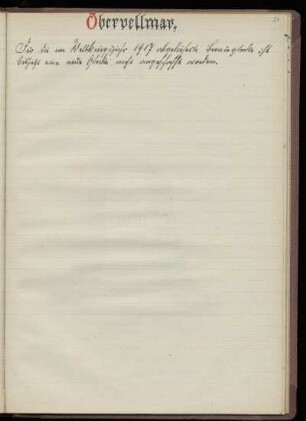 Obervellmar.
Für die im Weltkriegsjahr 1917 abgelieferte Bronzeglocke ist
bisher eine neue Glocke nicht angeschafft worden.